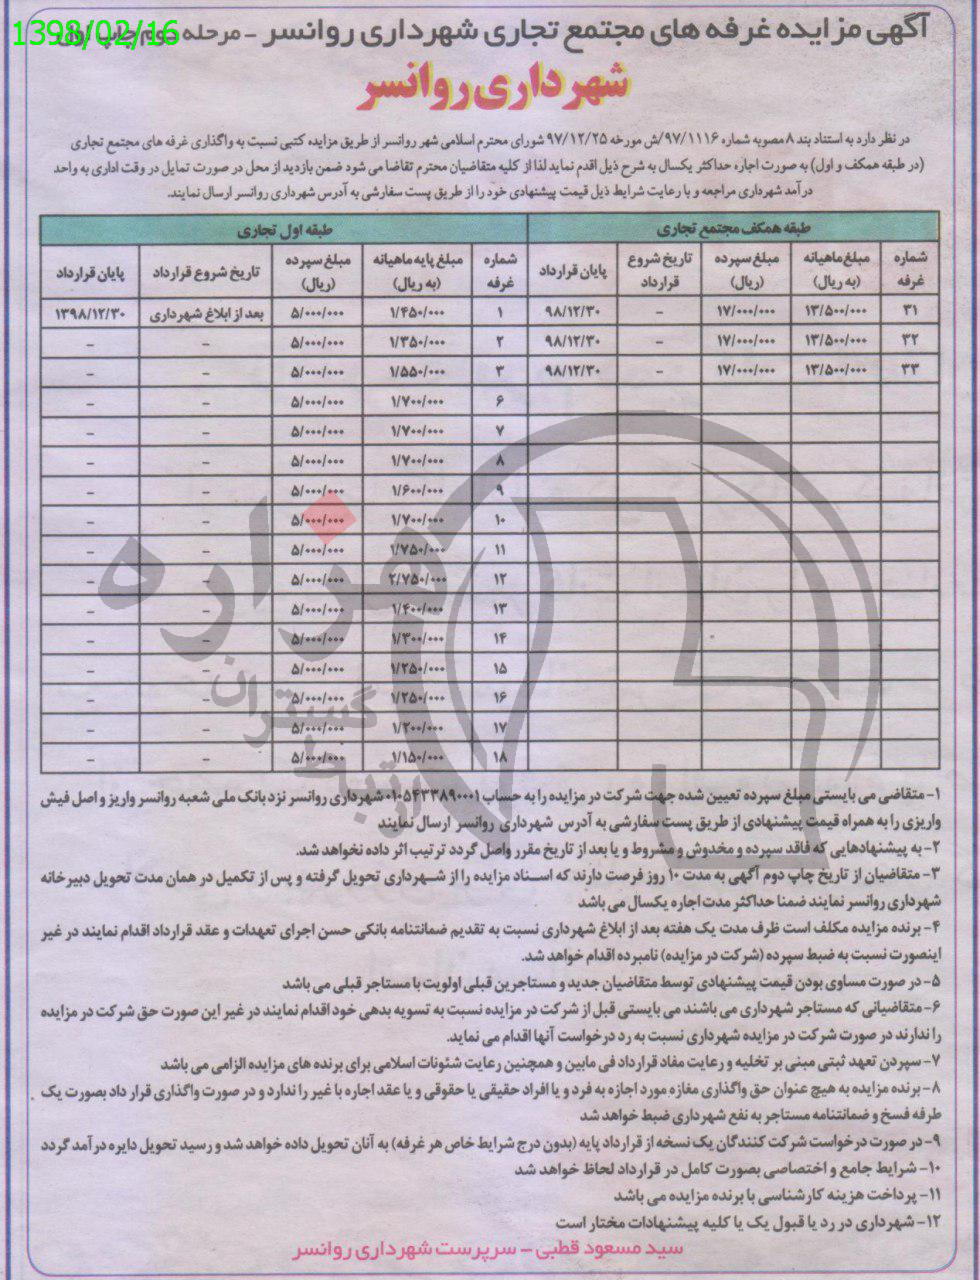 1398/02/16
آگهی مزایده غرفه های مجتمع تجاری شهرداری روانسر - مرحله دوم چاپ اول
شهرداری روانسر
در نظر دارد به استناد بند ۸ مصوبه شماره ۹۷/۱۱۱۶/ش مورخه ۹۷/۱۲/۲۵ شورای محترم اسلامی شهر روانسر از طریق مزایده کتبی نسبت به واگذاری غرفه های مجتمع تجاری
(در طبقه همکف و اول) به صورت اجاره حداکثر یکسال به شرح ذیل اقدم نماید لذا از کلیه متقاضیان محترم تقاضا می شود ضمن بازدید از محل در صورت تمایل در وقت اداری به واحد
درآمد شهرداری مراجعه و با رعایت شرایط ذیل قیمت پیشنهادی خود را از طریق پست سفارشی به آدرس شهرداری روانسر ارسال نمایند.
طبقه همکف مجتمع تجاری طبقه اول تجاری
شماره غرفه مبلغ ماهیانه (به ریال) مبلغ سپرده (ریال) تاریخ شروع قرارداد پایان قرارداد شماره غرفه مبلغ پایه ماهیانه (به ریال) مبلغ سپرده (ریال) تاریخ شروع قرارداد پایان قرارداد
۳۱ ۱۳/۵۰۰/۰۰۰ ۱۷/۰۰۰/۰۰۰ - ۹۸/۱۲/۳۰ ۱ ۱/۴۵۰/۰۰۰ ۵/۰۰۰/۰۰۰ بعد از ابلاغ شهرداری ۱۳۹۸/۱۲/۳۰
۳۲ ۱۳/۵۰۰/۰۰۰ ۱۷/۰۰۰/۰۰۰ - ۹۸/۱۲/۳۰ ۲ ۱/۳۵۰/۰۰۰ ۵/۰۰۰/۰۰۰ - -
۳۳ ۱۳/۵۰۰/۰۰۰ ۱۷/۰۰۰/۰۰۰ - ۹۸/۱۲/۳۰ ۳ ۱/۵۵۰/۰۰۰ ۵/۰۰۰/۰۰۰ - -
۶ ۱/۷۰۰/۰۰۰ ۵/۰۰۰/۰۰۰ - -
۷ ۱/۷۰۰/۰۰۰ ۵/۰۰۰/۰۰۰ - -
۸ ۱/۷۰۰/۰۰۰ ۵/۰۰۰/۰۰۰ - -
۹ ۱/۶۰۰/۰۰۰ ۵/۰۰۰/۰۰۰ - -
۱۰ ۱/۷۰۰/۰۰۰ ۵/۰۰۰/۰۰۰ - -
۱۱ ۱/۷۵۰/۰۰۰ ۵/۰۰۰/۰۰۰ - -
۱۲ ۲/۷۵۰/۰۰۰ ۵/۰۰۰/۰۰۰ - -
۱۳ ۱/۴۰۰/۰۰۰ ۵/۰۰۰/۰۰۰ - -
۱۴ ۱/۳۰۰/۰۰۰ ۵/۰۰۰/۰۰۰ - -
۱۵ ۱/۲۵۰/۰۰۰ ۵/۰۰۰/۰۰۰ - -
۱۶ ۱/۲۵۰/۰۰۰ ۵/۰۰۰/۰۰۰ - -
۱۷ ۱/۲۰۰/۰۰۰ ۵/۰۰۰/۰۰۰ - -
۱۸ ۱/۱۵۰/۰۰۰ ۵/۰۰۰/۰۰۰ - -
هزاره
۱- متقاضی می بایستی مبلغ سپرده تعیین شده جهت شرکت در مزایده را به حساب ۰۱۰۵۴۳۳۸۹۰۰۰۱ شهرداری روانسر نزد بانک ملی شعبه روانسر واریز و اصل فیش
واریزی را به همراه قیمت پیشنهادی از طریق پست سفارشی به آدرس شهرداری روانسر ارسال نمایند
۲- به پیشنهادهایی که فاقد سپرده و مخدوش و مشروط و یا بعد از تاریخ مقرر واصل گردد ترتیب اثر داده نخواهد شد.
۳- متقاضیان از تاریخ چاپ دوم آگهی به مدت ۱۰ روز فرصت دارند که اسـناد مزایده را از شـهرداری تحویل گرفته و پس از تکمیل در همان مدت تحویل دبیرخانه
شهرداری روانسر نمایند ضمنا حداکثر مدت اجاره یکسال می باشد
۴- برنده مزایده مکلف است ظرف مدت یک هفته بعد از ابلاغ شهرداری نسبت به تقدیم ضمانتنامه بانکی حسن اجرای تعهدات و عقد قرارداد اقدام نمایند در غیر
اینصورت نسبت به ضبط سپرده (شرکت در مزایده) نامبرده اقدام خواهد شد.
۵- در صورت مساوی بودن قیمت پیشنهادی توسط متقاضیان جدید و مستاجرین قبلی اولویت با مستاجر قبلی می باشد
۶- متقاضیانی که مستاجر شهرداری می باشند می بایستی قبل از شرکت در مزایده نسبت به تسویه بدهی خود اقدام نمایند در غیر این صورت حق شرکت در مزایده
را ندارند در صورت شرکت در مزایده شهرداری نسبت به رد درخواست آنها اقدام می نماید.
۷- سپردن تعهد ثبتی مبنی بر تخلیه و رعایت مفاد قرارداد فی مابین و همچنین رعایت شئونات اسلامی برای برنده های مزایده الزامی می باشد
۸- برنده مزایده به هیچ عنوان حق واگذاری مغازه مورد اجازه به فرد و یا افراد حقیقی یا حقوقی و یا عقد اجاره با غیر را ندارد و در صورت واگذاری قرار داد بصورت یک
طرفه فسخ و ضمانتنامه مستاجر به نفع شهرداری ضبط خواهد شد
۹- در صورت درخواست شرکت کنندگان یک نسخه از قرارداد پایه (بدون درج شرایط خاص هر غرفه) به آنان تحویل داده خواهد شد و رسید تحویل دایره درآمد گردد
۱۰- شرایط جامع و اختصاصی بصورت کامل در قرارداد لحاظ خواهد شد
۱۱- پرداخت هزینه کارشناسی با برنده مزایده می باشد
۱۲- شهرداری در رد یا قبول یک یا کلیه پیشنهادات مختار است
سید مسعود قطبی - سرپرست شهرداری روانسر